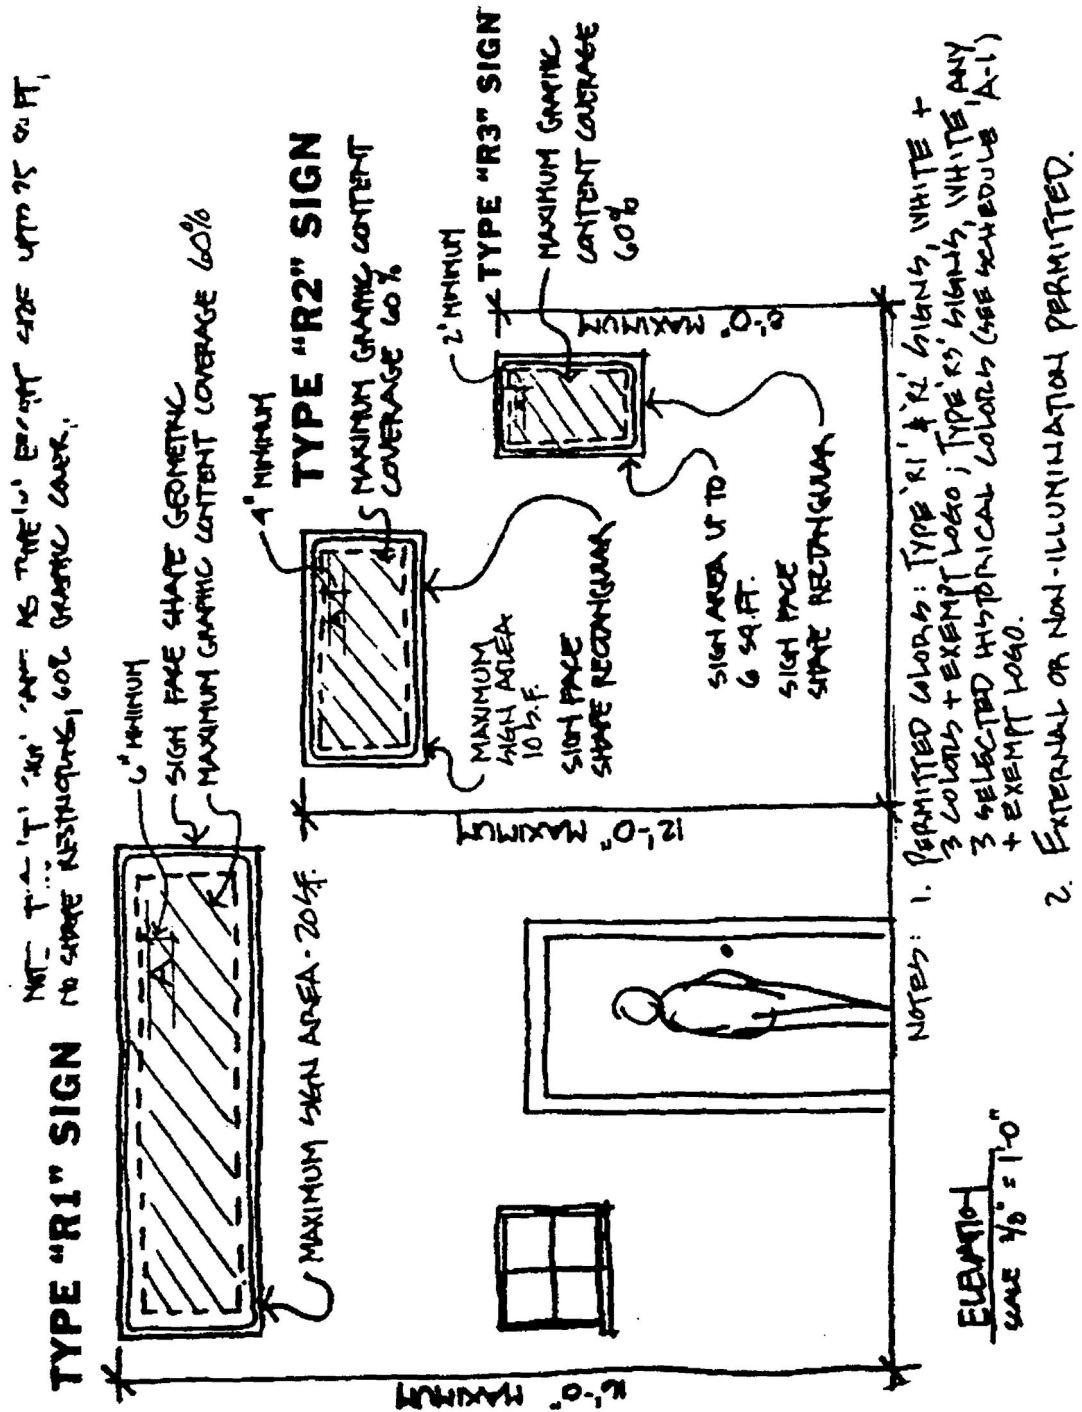 TYPE "R1" SIGN
NO SHAPE RESTRICTIONS, 60% GRAPHIC COVER.
6" MINIMUM
SIGN FACE SHAPE GEOMETRIC
MAXIMUM GRAPHIC CONTENT COVERAGE 60%
MAXIMUM SIGN AREA - 20 S.F.
16'-0" MAXIMUM
TYPE "R2" SIGN
4" MINIMUM
MAXIMUM GRAPHIC CONTENT
COVERAGE 60%
MAXIMUM
SIGN AREA
10 S.F.
SIGN FACE
SHAPE RECTANGULAR
12'-0" MAXIMUM
TYPE "R3" SIGN
2" MINIMUM
MAXIMUM GRAPHIC
CONTENT COVERAGE
60%
SIGN AREA UP TO
6 SQ. FT.
SIGN FACE
SHAPE RECTANGULAR
8'-0" MAXIMUM
ELEVATION
SCALE = 1'-0"
NOTES:
1. PERMITTED COLORS: TYPE 'R1' & 'R2' SIGNS, WHITE +
3 COLORS + EXEMPT LOGO; TYPE 'R3' SIGNS, WHITE, ANY
3 SELECTED HISTORICAL COLORS (SEE SCHEDULE 'A-1')
+ EXEMPT LOGO.
2. EXTERNAL OR NON-ILLUMINATION PERMITTED.